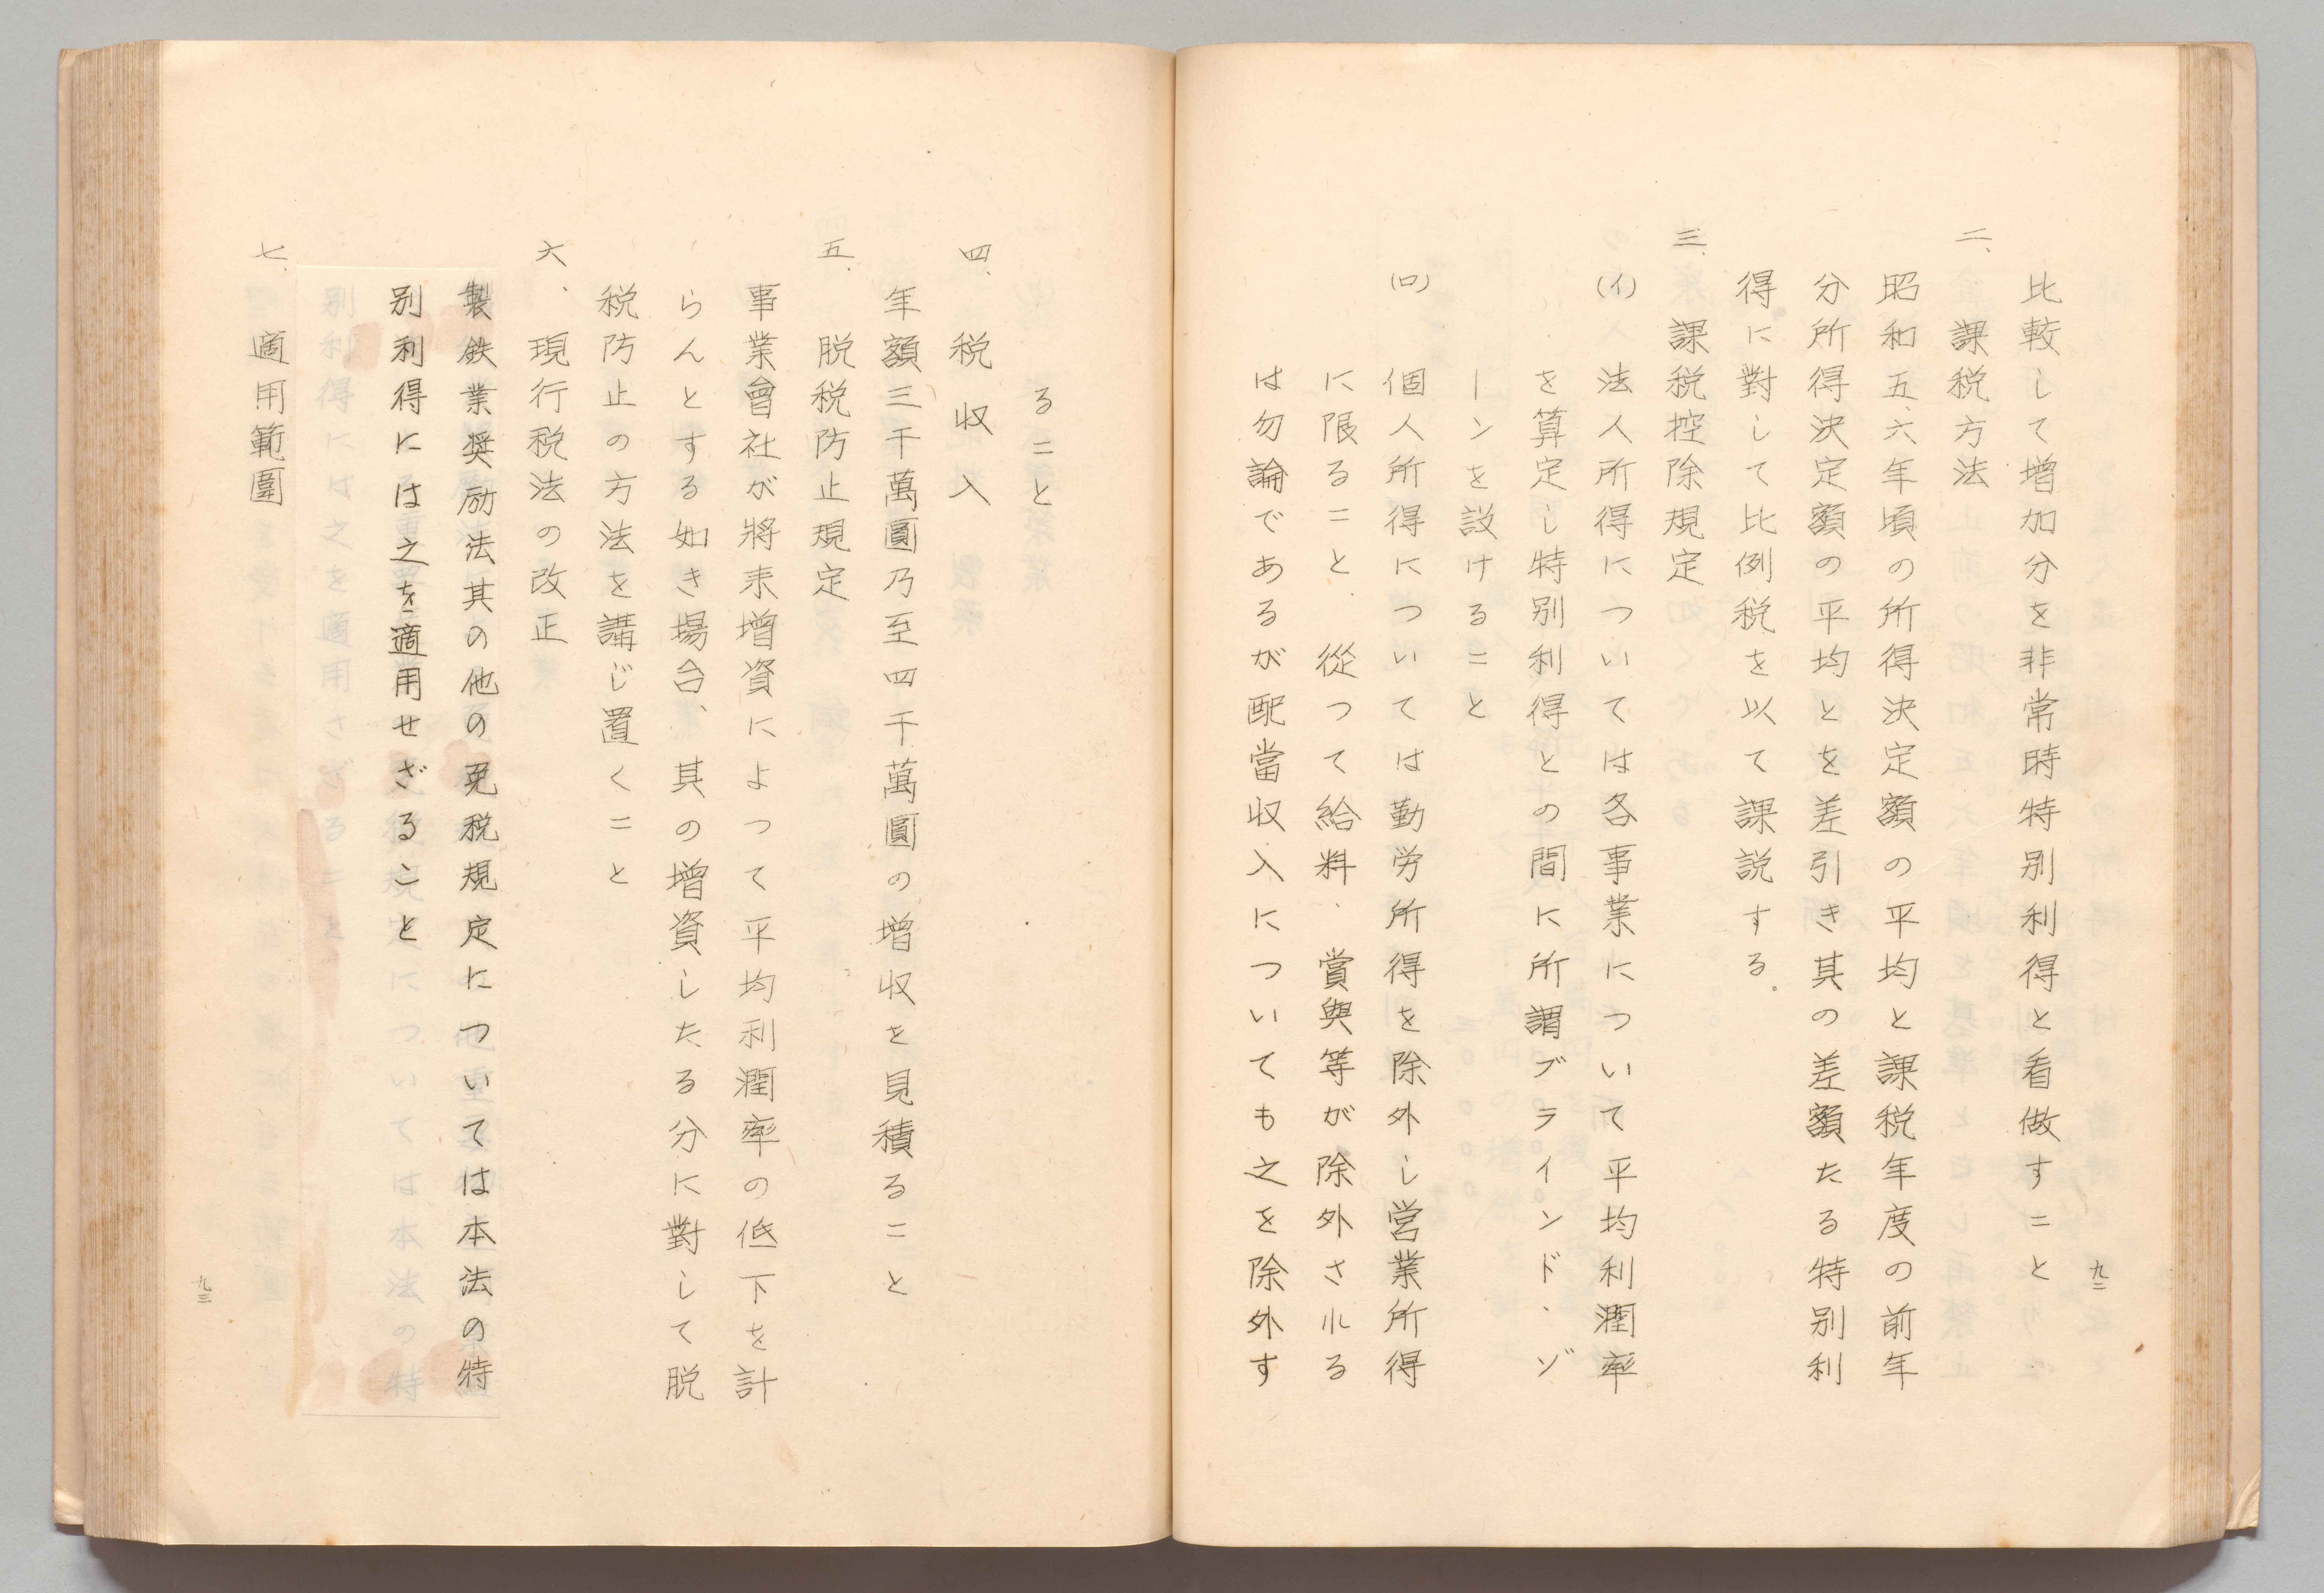 九二
比較して増加分を非常時特別利得と看做すこと
二、課税方法
昭和五、六年頃の所得決定額の平均と課税年度の前年
分所得決定額の平均とを差引き其の差額たる特別利
得に對して比例税を以て課説する。
三、課税控除規定
(イ) 法人所得については各事業について平均利潤率
を算定し特別利得との間に所謂ブラインド、ゾ
ーンを設けること
(ロ) 個人所得については勤労所得を除外し営業所得
に限ること、從つて給料、賞與等が除外される
は勿論であるが配當収入についても之を除外す
ること
四、税収入
年額三千萬圓乃至四千萬圓の増収を見積ること
五、脱税防止規定
事業會社が將来増資によつて平均利潤率の低下を計
らんとする如き場合、其の増資したる分に對して脱
税防止の方法を講じ置くこと
六、現行税法の改正
製鉄業奨励法其の他の免税規定については本法の特
別利得には之を適用せざること
七、適用範圍
九三